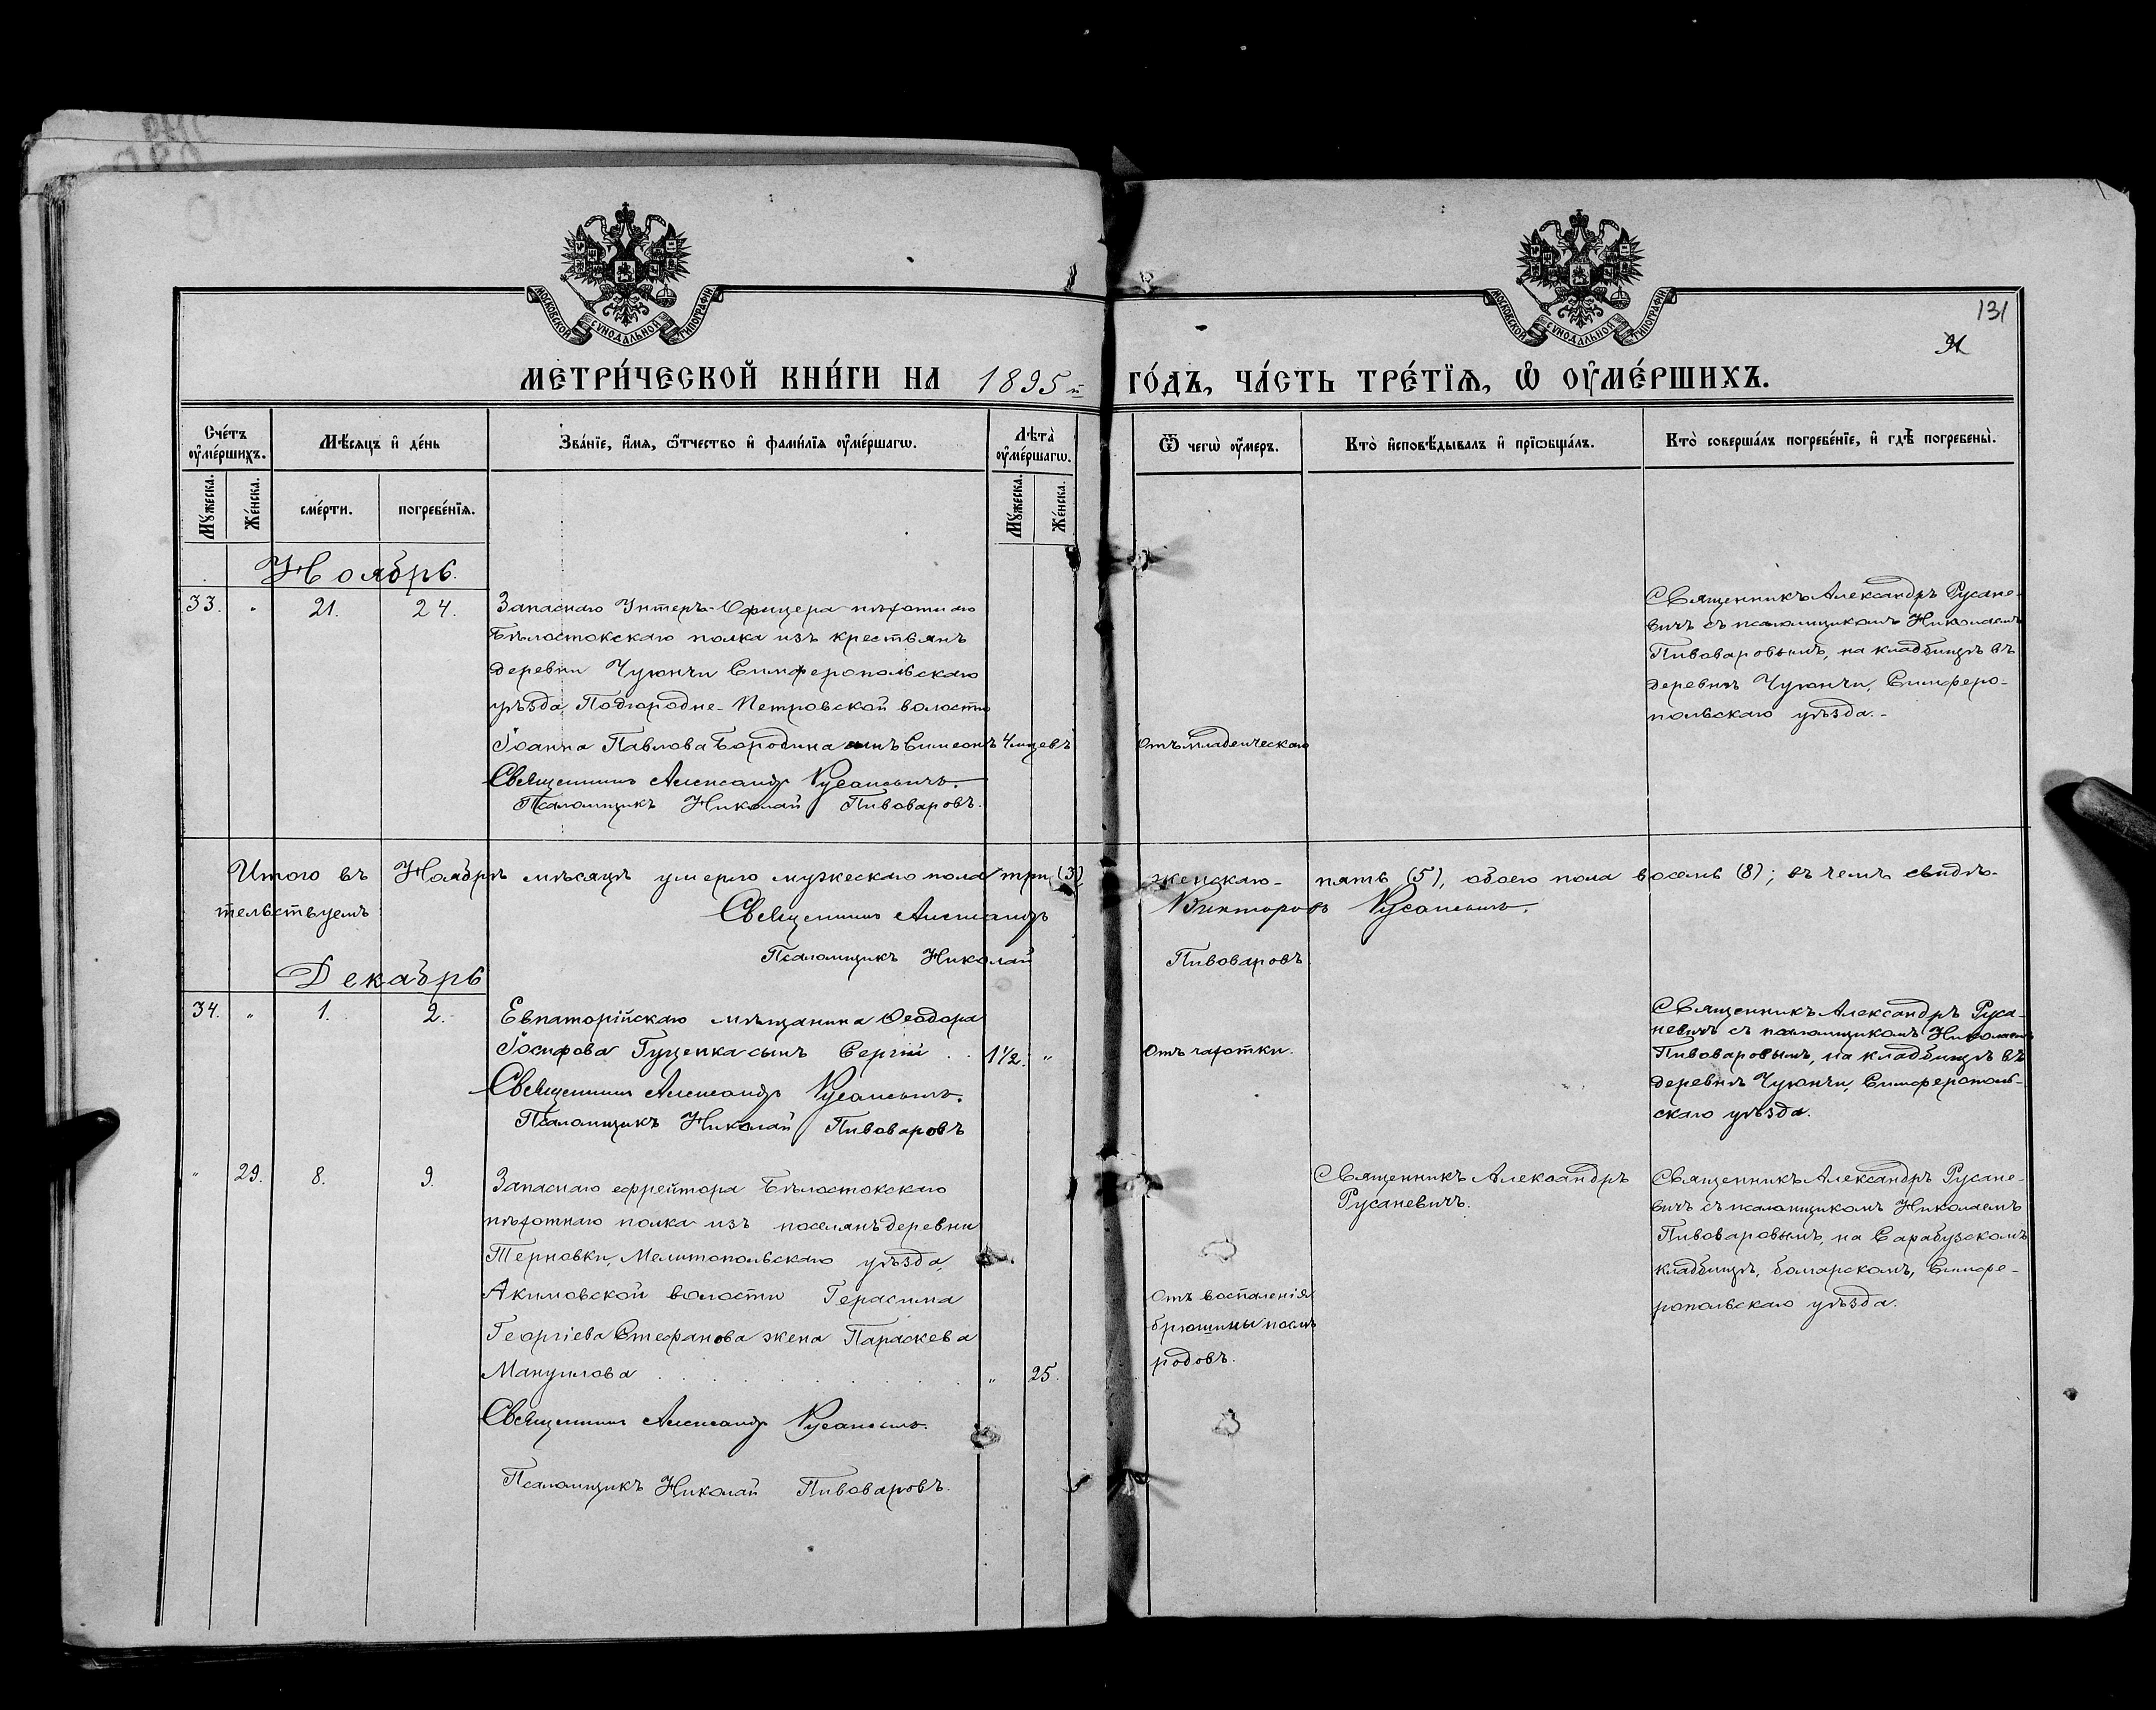 МОСКОВСКОЙ СѴНОДАЛЬНОЙ ТИПОГРАФІИ
МОСКОВСКОЙ СѴНОДАЛЬНОЙ ТИПОГРАФІИ
131
МЕТРИ́ЧЕСКОЙ КНИ́ГИ НА 1895 й ГО́ДЪ, ЧА́СТЬ ТРЕ́ТЇѦ, Ѡ҆ ОУ҆МЕ́РШИХЪ.
Сче́тъ оу҆ме́ршихъ.
Мѣ́сѧцъ и҆ де́нь
Зва́нїе, и҆́мѧ, ѻ҆́тчество и҆ фами́лїѧ оу҆ме́ршагѡ.
Лѣ́та оу҆ме́ршагѡ.
Ѿ чегѡ̀ оу҆́меръ.
Кто̀ и҆сповѣ́дывалъ и҆ прїѡбща́лъ.
Кто̀ соверша́лъ погребе́нїе, и҆ гдѣ̀ погребены̀.
Мꙋ́жеска.
Же́нска.
сме́рти.
погребе́нїѧ.
Мꙋ́жеска.
Же́нска.
Ноябрь.
33. " 21. 24.
Запаснаго Унтеръ-Офицера пѣхотнаго
Бѣлостокскаго полка изъ крестьянъ
деревни Чуюнчи Симферопольскаго
уѣзда, Подгородне-Петровской волости
Іоанна Павлова Бородина сынъ Симеонъ 4 мцевъ
Священникъ Александр Русаневичъ.
Псаломщикъ Николай Пивоваровъ.
Отъ младенческаго
Священникъ Александръ Русане-
вичъ съ псаломщикомъ Николаемъ
Пивоваровымъ, на кладбищѣ въ
деревнѣ Чуюнчи, Симферо-
польскаго уѣзда.-
Итого въ Ноябрѣ мѣсяцѣ умерло мужескаго пола три (3) женскаго- пять (5), обоего пола восемь (8); въ чемъ свидѣ-
тельствуемъ: Священникъ Александръ Викторовъ Русаневичъ.
Псаломщикъ Николай Пивоваровъ.
Декабрь
34. " 1. 2.
Евпаторійскаго мѣщанина Ѳеодора
Іосифова Гуценка сынъ Сергій . . 1 1/2. "
Священникъ Александр Русаневичъ.
Псаломщикъ Николай Пивоваровъ
Отъ чахотки.
Священникъ Александръ Руса-
невичъ съ псаломщикомъ Николаемъ
Пивоваровымъ, на кладбищѣ въ
деревнѣ Чуюнчи, Симферополь-
скаго уѣзда.
" 29. 8. 9.
Запаснаго ефрейтора Бѣлостокскаго
пѣхотнаго полка изъ поселянъ деревни
Терновки, Мелитопольскаго уѣзда,
Акимовской волости Герасима
Георгіева Стефанова жена Параскева
Мануилова . . . . . " 25.
Священникъ Александр Русаневичъ.
Псаломщикъ Николай Пивоваровъ.
Отъ воспаленія
брюшины послѣ
родовъ.
Священникъ Александръ
Русаневичъ.
Священникъ Александръ Русане-
вичъ съ псаломщикомъ Николаемъ
Пивоваровымъ, на Сарабузскомъ
кладбищѣ, болгарскомъ, Симфе-
ропольскаго уѣзда.